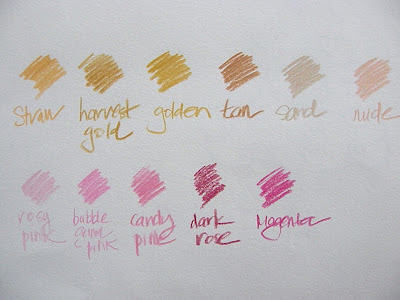 straw
harvest
gold
golden
tan
sand
nude
rosy
pink
bubble
gum
pink
candy
pink
dark
rose
Magenta